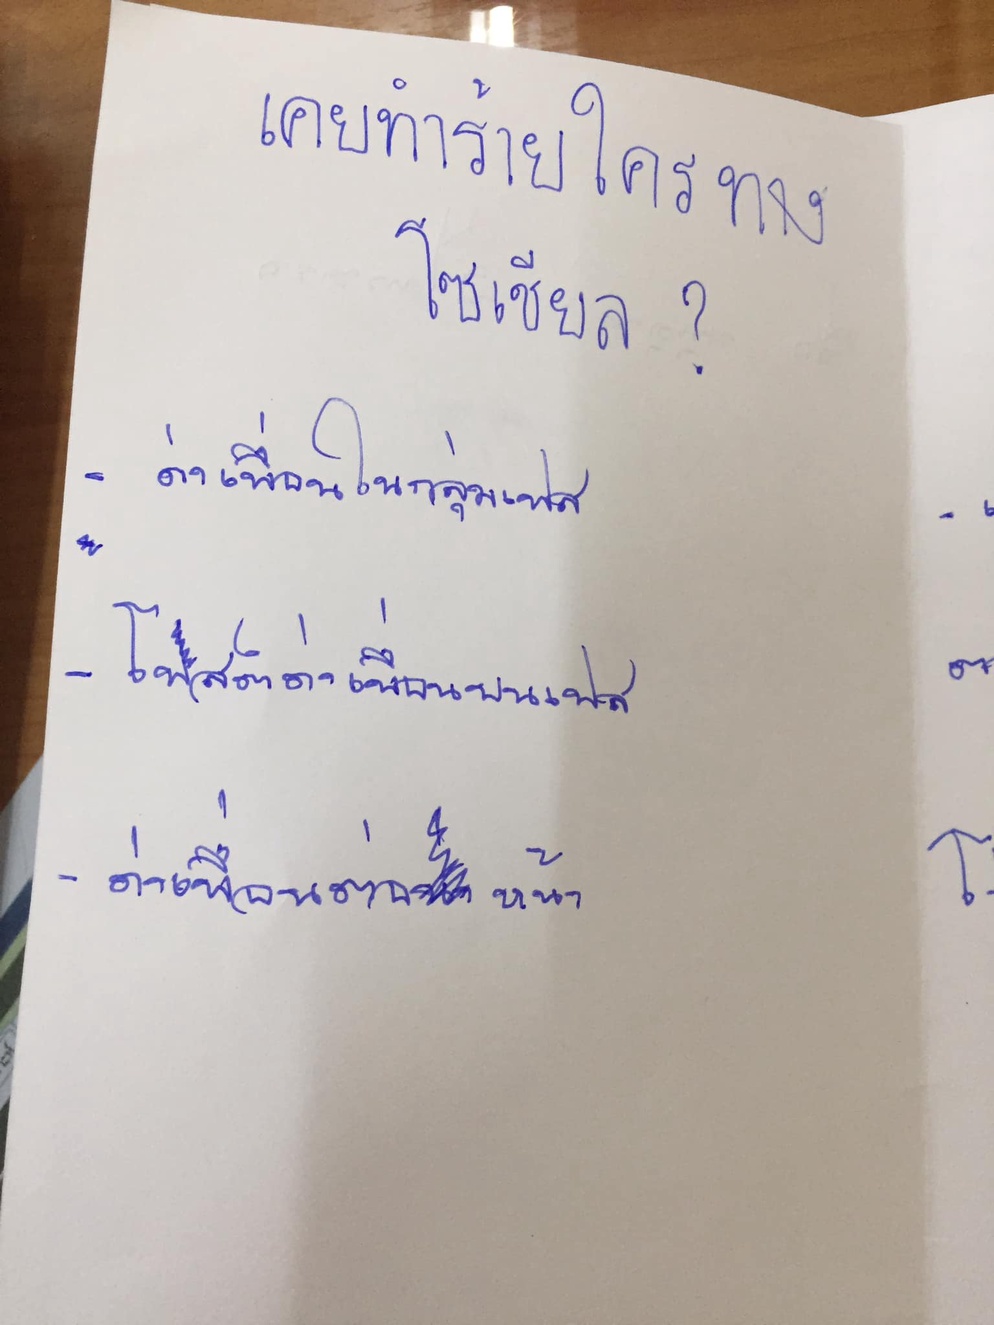 เคยทำร้ายใครทาง
โซเชียล ?
- ด่าเพื่อนในกลุ่มเฟส
- โพสต์ด่าเพื่อนบนเฟส
- ด่าเพื่อนต่อ หน้า